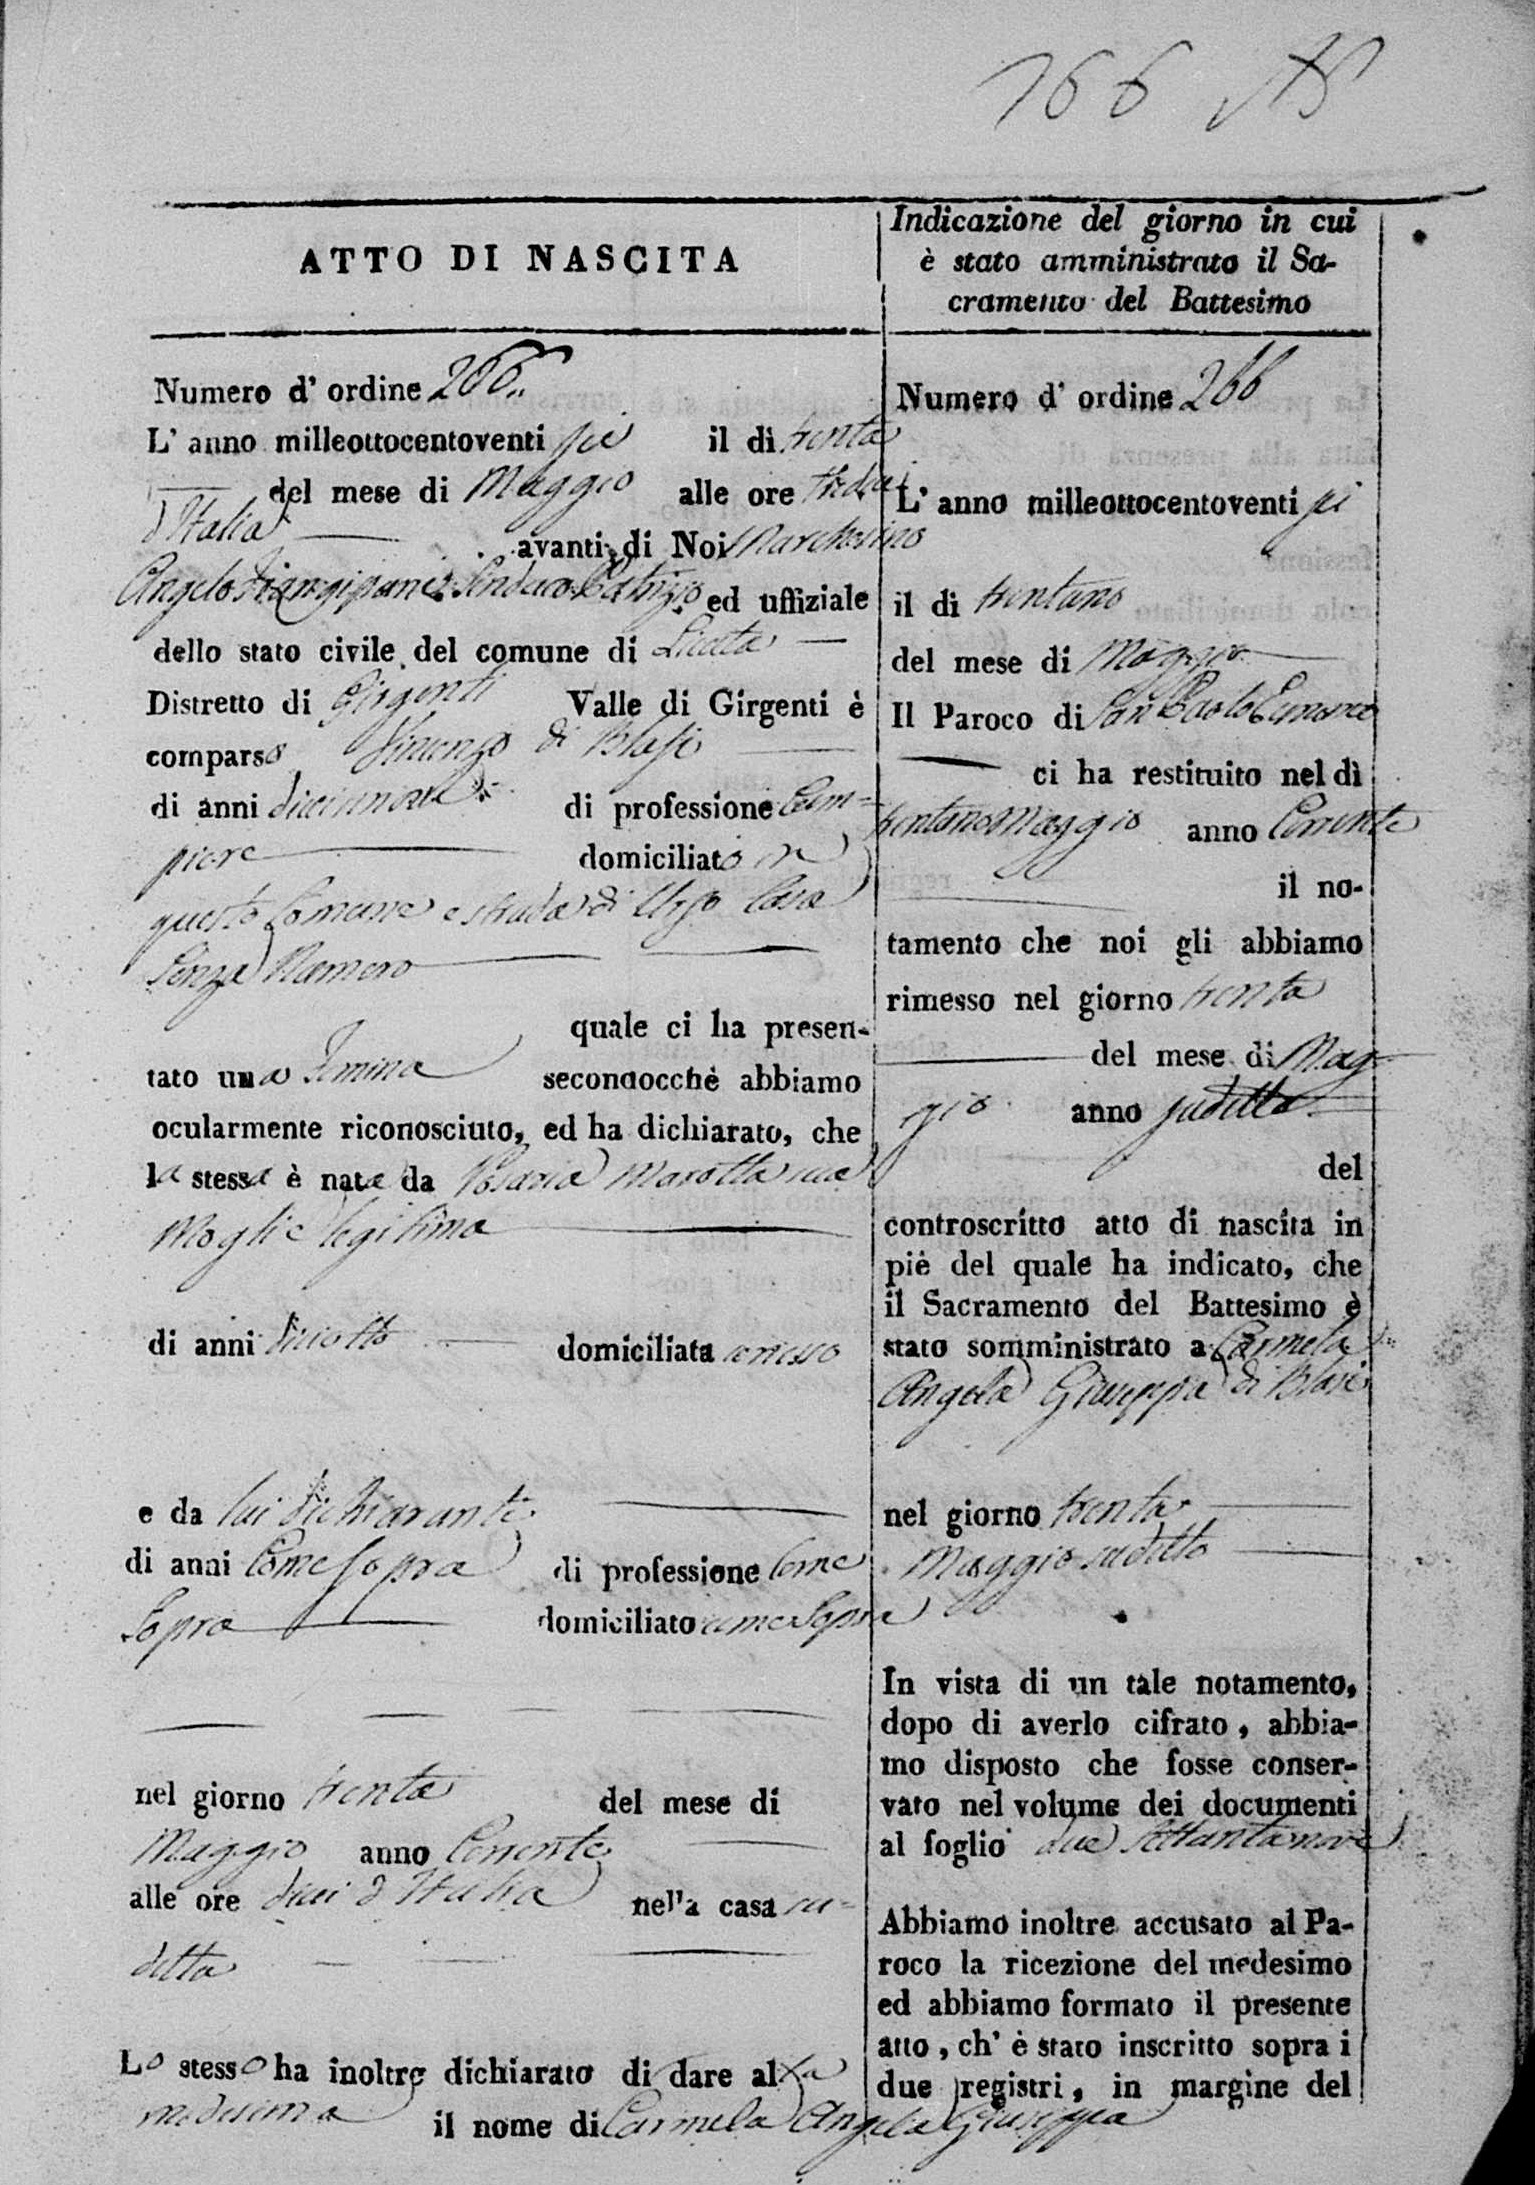 166
ATTO DI NASCITA
Numero d' ordine 266
L' anno milleottocentoventi sei il di trenta
del mese di Maggio alle ore
d'Italia avanti di Noi Marchesino
Angelo Frangipane Sindaco Patrizio ed uffiziale
dello stato civile del comune di Licata
Distretto di Girgenti Valle di Girgenti è
comparso Vincenzo di Blasi
di anni diecinnove di professione
domiciliato in
questo Comune strada di Urso Casa
Senza Numero
quale ci ha presen-
tato una Femina secondocchè abbiamo
ocularmente riconosciuto, ed ha dichiarato, che
la stessa è nata da Rosaria Marotta sua
Moglie legitima
di anni diciotto domiciliata con esso
e da lui dichiarante
di anni Come Sopra di professione Come
Sopra domiciliato come Sopra
nel giorno trenta del mese di
Maggio anno Corrente
alle ore dieci d'Italia nella casa su=
detta
Lo stesso ha inoltre dichiarato di dare alla
medesima il nome di Carmela Angela Giuseppa
Indicazione del giorno in cui
è stato amministrato il Sa-
cramento del Battesimo
Numero d' ordine 266
L' anno milleottocentoventi sei
il di trentuno
del mese di Maggio
Il Paroco di San Paolo Eremita
ci ha restituito nel dì
trentuno Maggio anno Corrente
il no-
tamento che noi gli abbiamo
rimesso nel giorno trenta
del mese di Mag=
gio anno sudetto
del
controscritto atto di nascita in
piè del quale ha indicato, che
il Sacramento del Battesimo è
stato somministrato a Carmela
Angela Giuseppa di Blasi
nel giorno trenta
Maggio sudetto
In vista di un tale notamento,
dopo di averlo cifrato, abbia-
mo disposto che fosse conser-
vato nel volume dei documenti
al foglio due settantanove
Abbiamo inoltre accusato al Pa-
roco la ricezione del medesimo
ed abbiamo formato il presente
atto, ch' è stato inscritto sopra i
due registri, in margine del